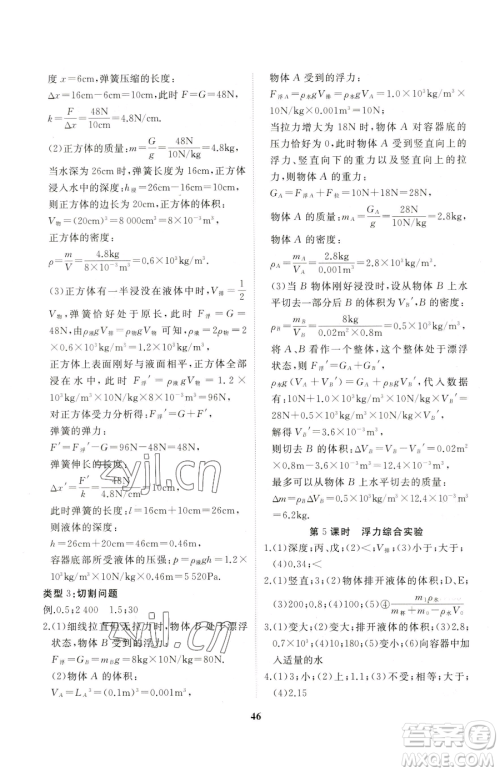 度 x=6cm, 弹簧压缩的长度:
Δx=16cm-6cm=10cm, 此时 F=G=48N,
k=F/Δx=48N/10cm=4.8N/cm.
(2)正方体的质量: m=G/g=48N/10N/kg=4.8kg,
当水深为 26cm 时, 弹簧长度为 16cm, 正方体
浸入水中的深度: h浸=26cm-16cm=10cm
V物=(20cm)³=8 000cm³=8×10⁻³m³
正方体的密度:
ρ=m/V=4.8kg/8×10⁻³m³=0.6×10³kg/m³
(3)正方体有一半浸没在液体中时, V排=1/2
V物, 弹簧恰好处于原长, 此时 F浮=G物=
48N, 由 ρ液gV排=ρ物gV物 可知, ρ液=2ρ物=2
×0.6×10³kg/m³=1.2×10³kg/m³
正方体上表面刚好与液面相平, 正方体全部
浸没, 受到的浮力: F浮′=ρ液gV物=1.2×
10³kg/m³×10N/kg×8×10⁻³m³=96N
对正方体受力分析得: F浮′=G+F′,
弹簧的弹力:
F′=F浮′-G=96N-48N=48N,
弹簧伸长的长度:
Δx′=F′/k=48N/4.8N/cm=10cm
此时弹簧的长度: l=16cm+10cm=26cm
则液体的深度:
h=l+h正方体=26cm+20cm=46cm=0.46m
容器底部受到液体的压强: p=ρ液gh=1.2×
10³kg/m³×10N/kg×0.46m=5 520Pa
类型 3:切割问题
例.0.5;2 400 1.5;30
2.(1)细线拉直但无拉力时, 物体 B 处于漂浮
状态, 物体 B 受到的浮力: F浮=GB=mg=
8kg×10N/kg=80N
(2)物体 A 的体积:
VA=LA³=(0.1m)³=0.001m³
物体 A 受到的浮力:
F浮A=ρ水gVA=1.0×10³kg/m³×
10N/kg×0.001m³=10N
当拉力增大为 18N 时, 物体 A 对容器底部的
压力恰好为 0, 此时物体 A 受到竖直向上的
浮力、竖直向下的重力以及竖直向上的拉力,
GA=F浮A+F拉=10N+18N=28N
物体 A 的质量: mA=GA/g=28N/10N/kg=2.8kg
物体 A 的密度:
ρA=mA/VA=2.8kg/0.001m³=2.8×10³kg/m³
(3)当 B 物体刚好浸没时, 设从 B 物体上水
平切去一部分后 B 的体积为 VB′, B 的密度:
ρB=mB/VB=8kg/0.02m²×0.8m=0.5×10³kg/m³
将 A、B 看成一个整体, 此时整体处于漂浮
状态, 则 F浮=G总,
ρ水g(VA+VB′)=GA+ρBgVB′, 代入数据有
1.0×10³kg/m³×10N/kg×(1×10⁻³m³+VB′)=
28N+0.5×10³kg/m³×10N/kg×VB′
解得: VB′=3.6×10⁻³m³
则切去 B 的体积为 ΔVB=VB-VB′=0.02m²
×0.8m-3.6×10⁻³m³=12.4×10⁻³m³
最多可以从 B 上水平切去的质量为:
Δm=ρBΔVB=0.5×10³kg/m³×12.4×10⁻³m³
=6.2kg.
第 5 课时 浮力综合实验
1.(1)深度;丙、戊;(2)不变;(3)密度;大于
2.(1)竖直;3;(2)物体排开液体的体积;D、E
(3)小石块的体积;小于④
3.(1)变大;(3)排开液体的体积;(4)2.8;
0.7×10³ (5)变大 (6)变小;(7)向容器中加
入适量的水
4.(1)3;小于;(2)3;(3)不受、等于;
(4)2.15
46